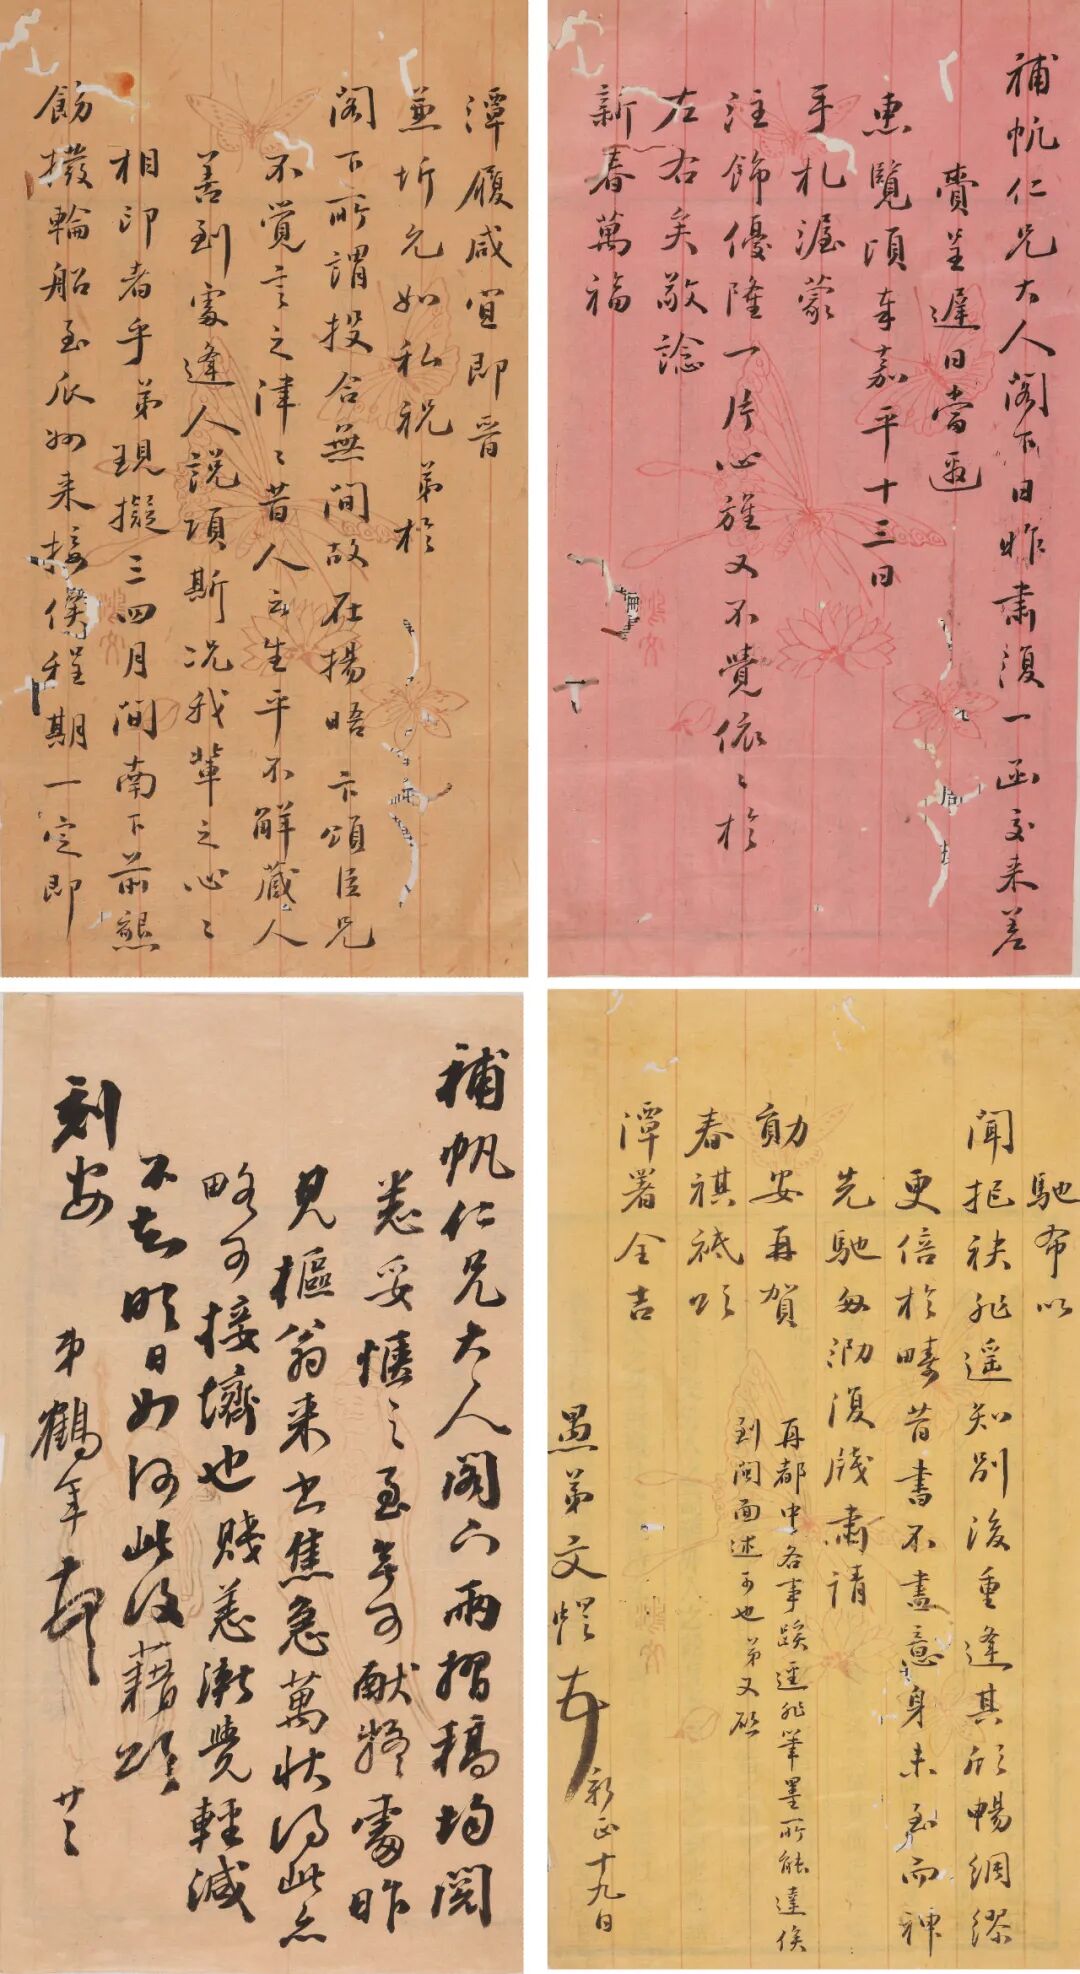 補帆仁兄大人閣下日昨肅復一函交来差
賫呈遲日當邀
惠覽頃奉嘉平十三日
手札渥蒙
注飾優隆一片心旌又不覺依〻於
左右矣敬諗
新春萬福
潭履咸宜即晉
兼圻允如私祝弟於
閣下所謂投合無間故在揚晤卞頌臣兄
不覺言之津〻昔人云生平不解藏人
善到處逢人説項斯况我輩之心〻
相印者乎弟現擬三四月間南下前懇
飭撥輪船至瓜州来接僕程期一定即
馳布以
聞拒袂非遥知别後重逢其欣暢綢繆
更倍於疇昔書不盡意身未至而神
先馳匆泐復牋肅请
勛安再賀
春祺祗頌
潭署全吉
再都中各事蹊逕非筆墨所能達俟
到閩面述可也弟又啟
愚弟文煜
新正十九日
補帆仁兄大人閣下兩摺稿均閱
悉妥愜之至無可獻疑處昨
見樞翁来書焦急萬狀得此亦
略可接濟也賤恙漸覺輕減
不知明日如何此復藉頌
刻安
弟鶴年頓
廿三